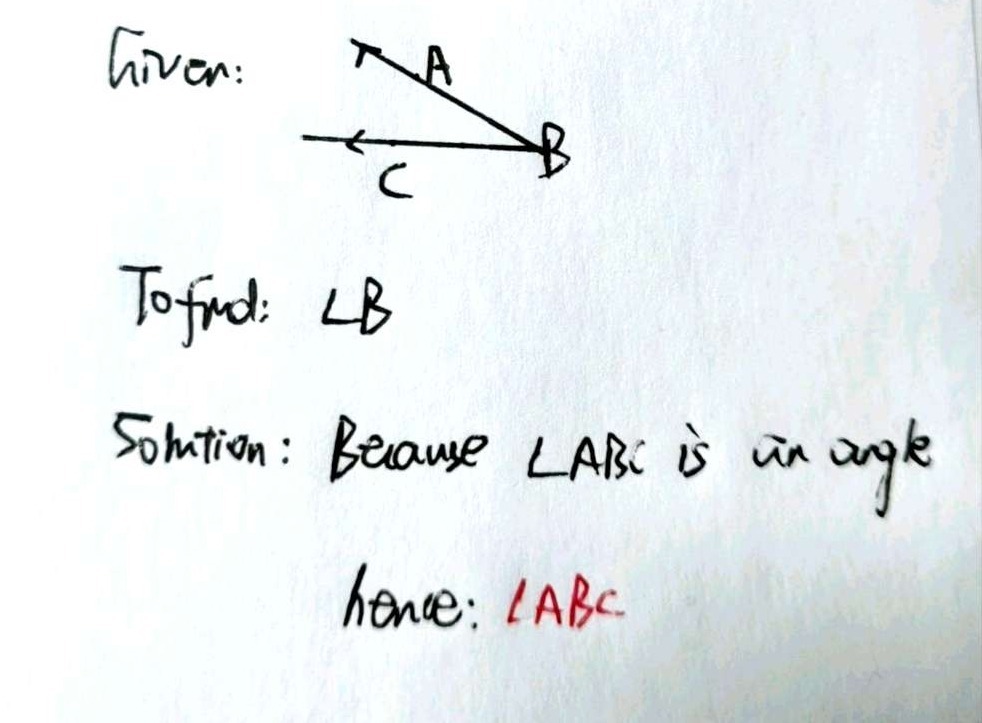 Given:
A
B
C
To find: ∠B
Solution: Because ∠ABC is an angle
hence: ∠ABC